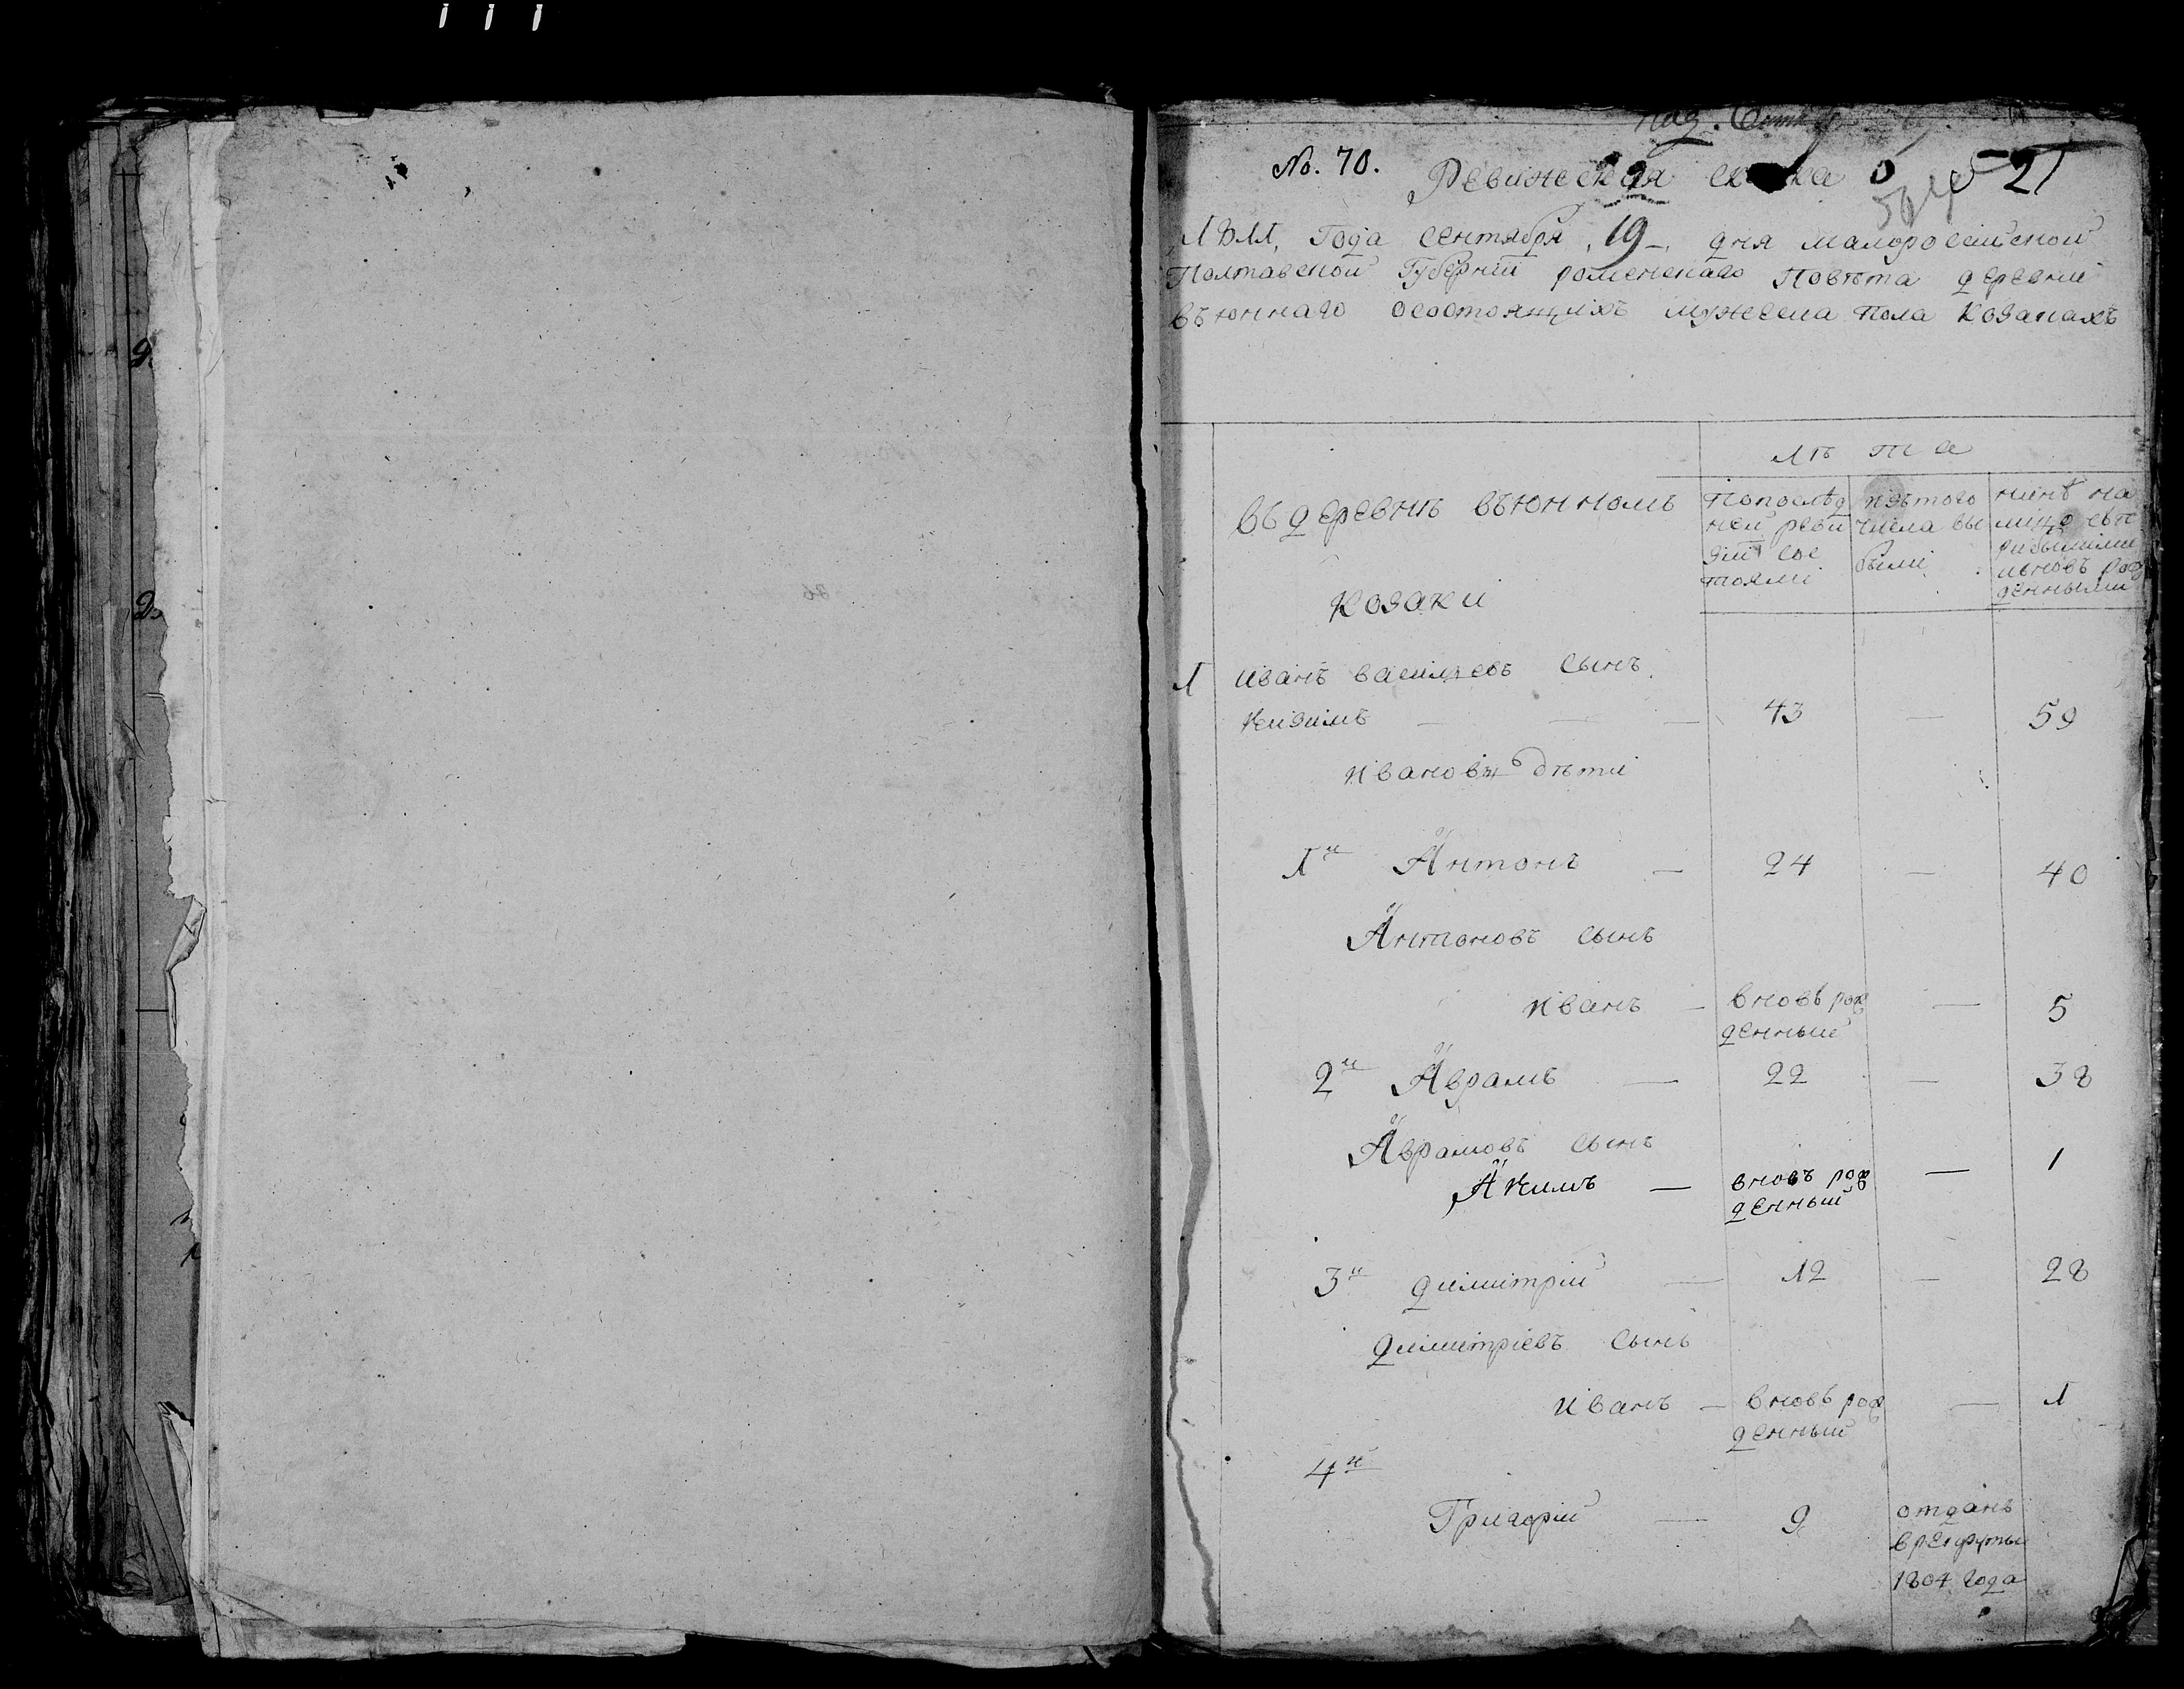 No. 70. Ревижеская ска ка 21
1811, Года сентября 19 дня малоросеийской
Полтавской Губерній роменскаго Повѣта деревни
вьюннаго осостоящихъ мужеска пола козакахъ
лѣта
въ деревнѣ вьюнномъ
Козаки
Попослѣд
ней реви
зіи сос
тояли
изътого
числа вы
были
нинѣ на
лицо сьп
рибылими
ивновь рож
денными
1 иванъ васильевъ сынъ
Кизимъ — — — 43 — 59
ивановы дѣти
1й Антонъ — 24 — 40
Антоновъ сынъ
иванъ — вновь рож
денный — 5
2й Аврамъ — 22 — 38
Аврамовъ сынъ
Акимъ — вновь рож
денный — 1
3й димитрій — 12 — 28
димитріевъ сынъ
иванъ — вновь рож
денный — 1
4й
Григорій — 9 отданъ
врекруты
1804 года